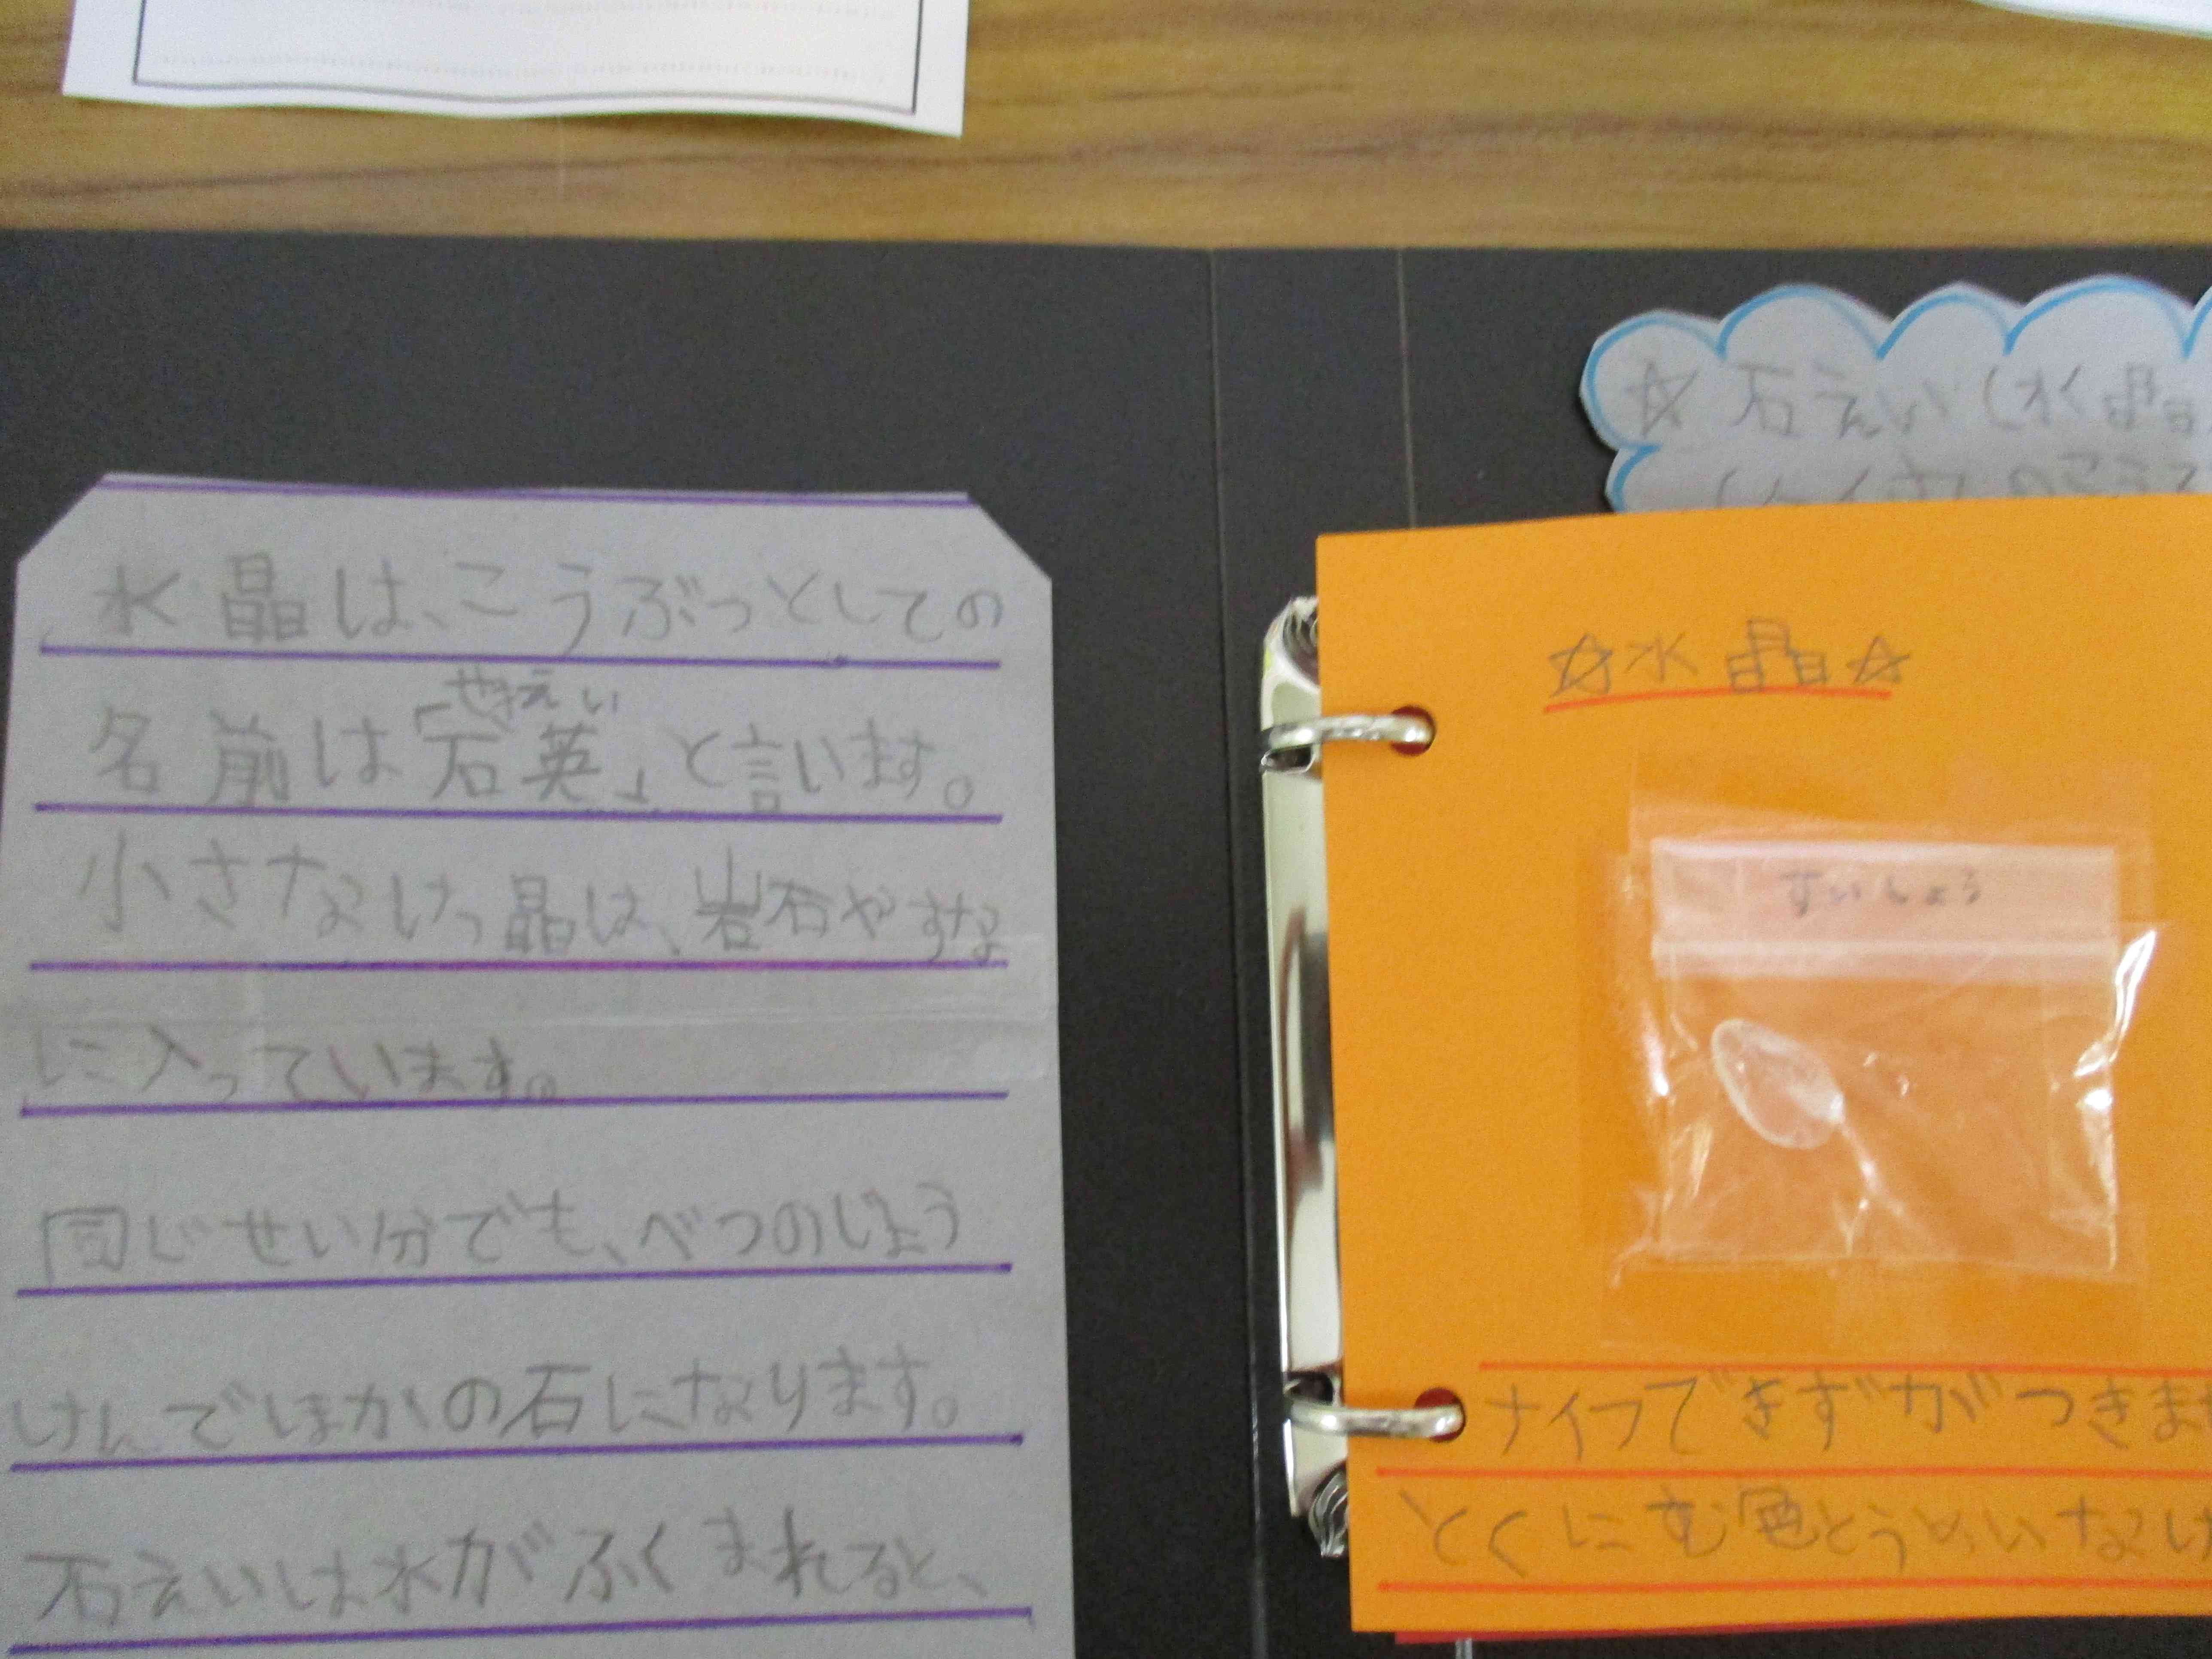 水晶は、こうぶっとしての
せきえい
名前は「石英」と言います。
小さなけっ晶は、岩石やすな
に入っています。
同じせい分でも、べつのじょう
けんでほかの石になります。
石えいは水がふくまれると、
☆石えい(水晶
☆水晶☆
すいしょう
ナイフできずがつきま
とくにむ色とうめいなけ